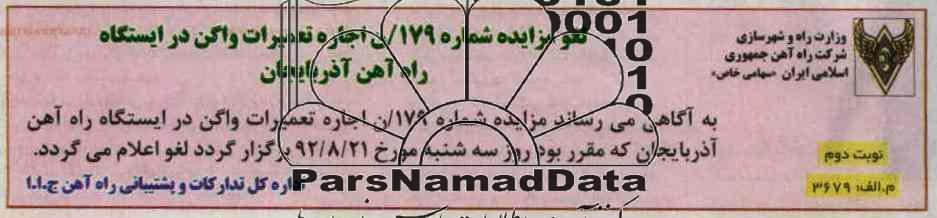 وزارت راه و شهرسازی
شرکت راه آهن جمهوری
اسلامی ایران «سهامی خاص»
لغو مزایده شماره ۱۷۹/ن اجاره تعمیرات واگن در ایستگاه
راه آهن آذربایجان
به آگاهی می رساند مزایده شماره ۱۷۹/ن اجاره تعمیرات واگن در ایستگاه راه آهن
آذربایجان که مقرر بود روز سه شنبه مورخ ۹۲/۸/۲۱ برگزار گردد لغو اعلام می گردد.
اداره کل تدارکات و پشتیبانی راه آهن ج.ا.ا
نوبت دوم
م.الف: ۳۶۷۹
ParsNamadData